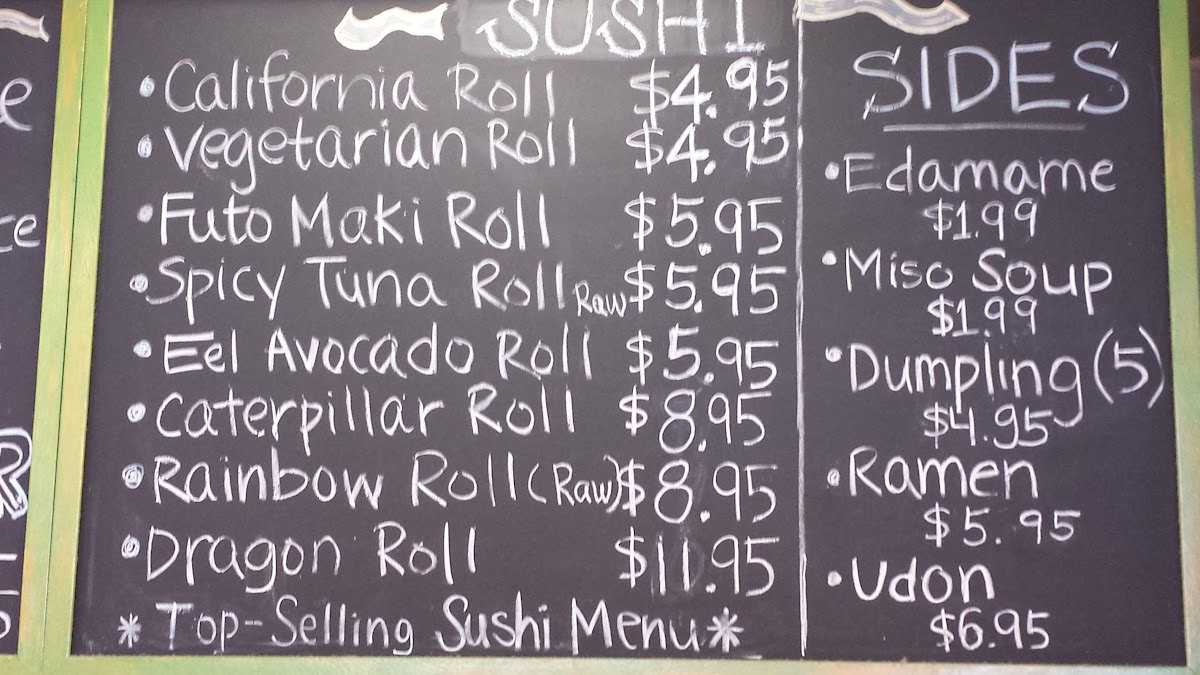 SUSHI
• California Roll $4.95
• Vegetarian Roll $4.95
• Futo Maki Roll $5.95
• Spicy Tuna Roll Raw $5.95
• Eel Avocado Roll $5.95
• Caterpillar Roll $8.95
• Rainbow Roll (Raw) $8.95
• Dragon Roll $11.95
* Top-Selling Sushi Menu *
SIDES
• Edamame
$1.99
• Miso Soup
$1.99
• Dumpling (5)
$4.95
• Ramen
$5.95
• Udon
$6.95